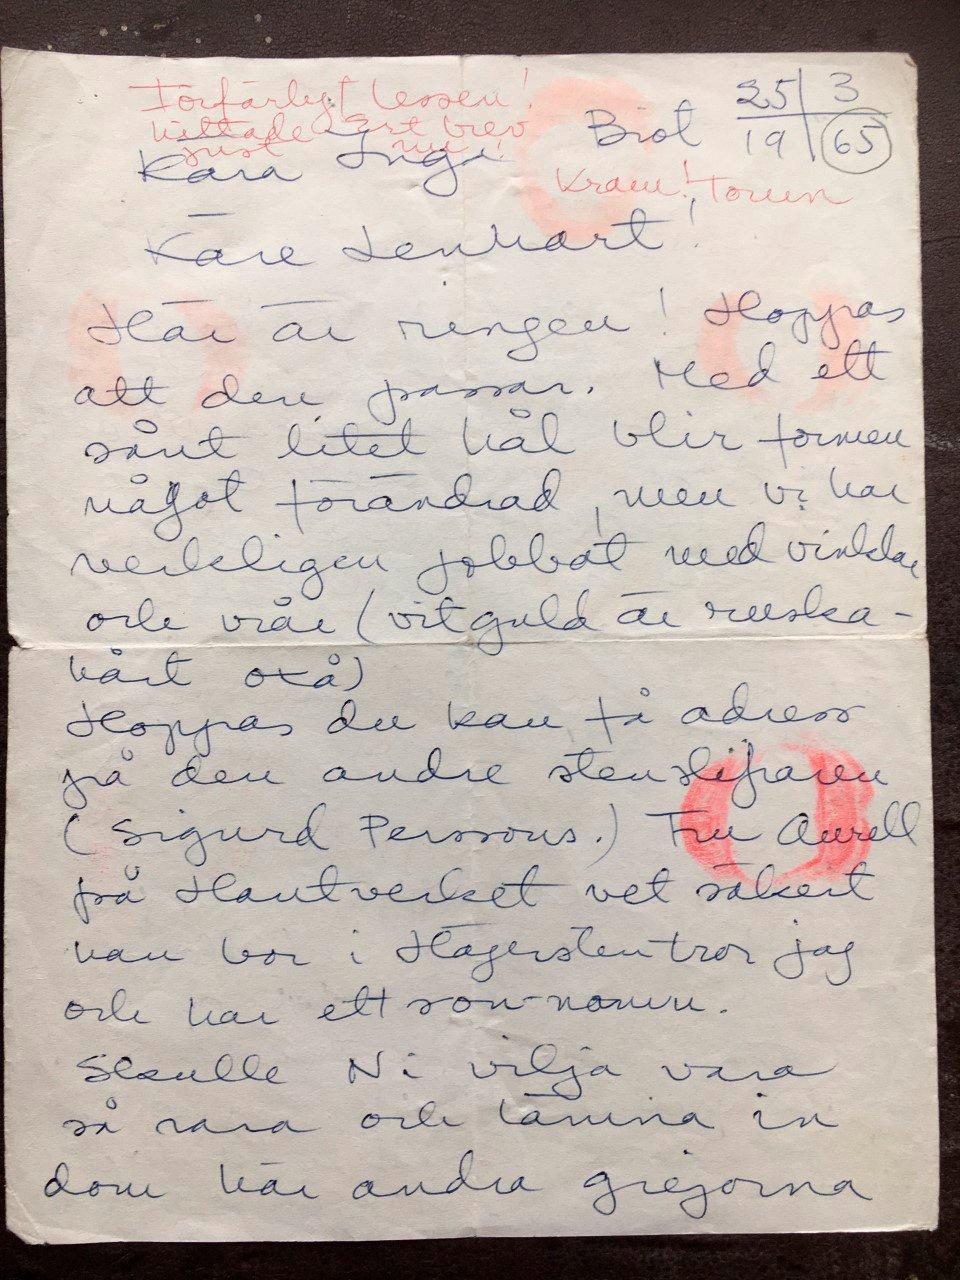 Förfärligt lessen!
hittade Ert brev
just nu!
Biot 25/3
19 65
Kram! Torun
Kära Inga
Käre Lennart!
Här är ringen! Hoppas
att den passar. Med ett
sånt litet hål blir formen
något förändrad, men vi har
verkligen jobbat med vinklar
och vrår (vitguld är ruska-
hårt oxå)
Hoppas du kan få adress
på den andre stenslifaren
(Sigurd Perssons.) Fru Aurell
på Hantverket vet säkert
han bor i Hägersten tror jag
och har ett son-namn.
Skulle Ni vilja vara
så rara och lämna in
dom här andra grejorna